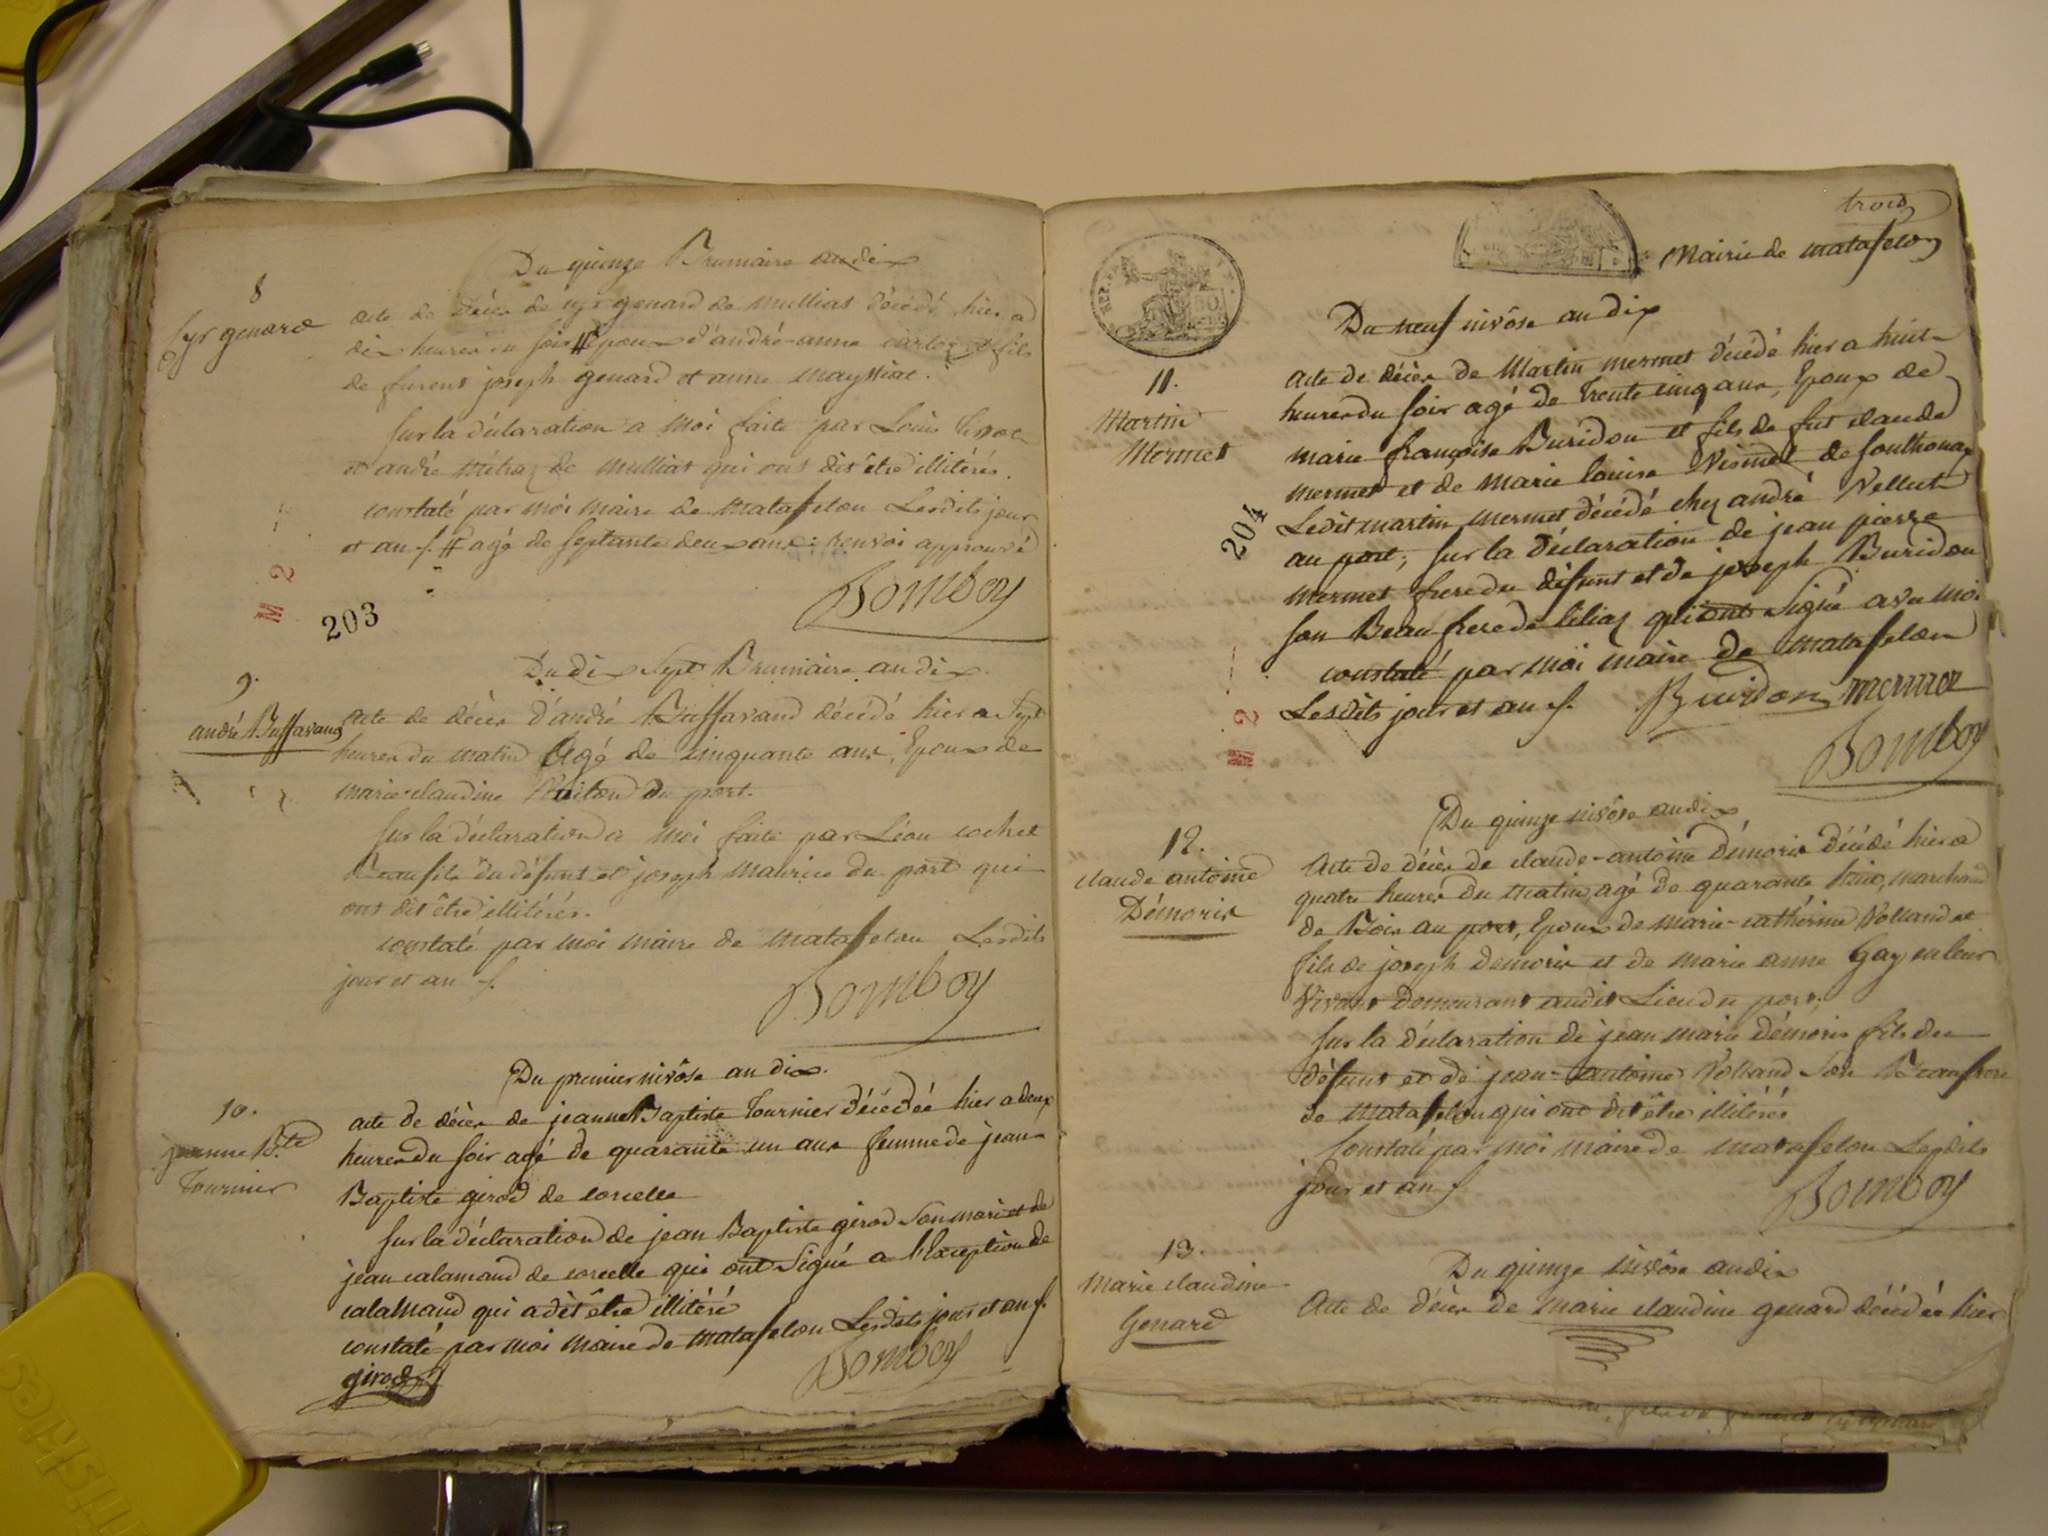 8
Cyr genard
Du quinze Brumaire an dix
acte de décès de cyr genard de mulliat décédé hier a
dix heures du soir # Epoux d'andré-anne carloz et fils
de furent joseph genard et anne mayssiat.
Sur la déclaration a moi faite par Louis tissot
et andré métraz de mulliat qui ont dit être illitérés.
constaté par moi maire de matafelon Lesdits jour
et an f. # agé de septante deux ans: renvoi approuvé
Bomboy
203
9.
andré Buffavand
Du dix Sept Brumaire an dix.
Acte de décès d'andré Buffavand décédé hier a Sept
heures du matin Agé de cinquante ans, Epoux de
marie claudine du port.
Sur la déclaration a moi faite par Léon cochet
Beaufils du défunt et joseph maurice du port qui
ont dit être illitérés.
constaté par moi maire de matafelon Lesdits
jour et an f.
Bomboy
10.
jeanne Bte
Tournier
Du premier nivôse an dix.
acte de décès de jeanne Baptiste Tournier décédée hier a deux
heures du soir agé de quarante un ans femme de jean
Baptiste girod de corcelle
Sur la déclaration de jean Baptiste girod Son mari et de
jean calamand de corcelle qui ont Signé a l'Exception de
calamand qui a dit être illitéré
constaté par moi maire de matafelon Lesdits jour et an f.
girod
Bomboy
trois
Mairie de matafelon
11.
Martin
Mermet
204
Du neuf nivôse an dix
Acte de décès de Martin mermet décédé hier a huit
heures du soir agé de trente cinq ans, Epoux de
marie françoise Buridon et fils de fut claude
mermet et de marie louise de fouthonax
Ledit martin mermet décédé chez andré Vellut
au port; Sur la déclaration de jean pierre
mermet frere du défunt et de joseph Buridon
son Beau frere de liliaz qui ont Signé avec moi
constaté par moi maire de matafelon
Lesdits jour et an f.
Buridon mermet
Bomboy
12.
claude antoine
Démoris
Du quinze nivôse an dix
Acte de décès de claude-antoine Démoris décédé hier a
quatre heures du matin, agé de quarante huit, marchand
de Bois au port, Epoux de marie-cathérine Volland et
fils de joseph demoris et de marie anne Gay en leur
Vivant demeurant audit Lieu du port.
Sur la déclaration de jean marie démoris fils du
défunt et de jean-antoine Volland Son Beaufrere
de matafelon qui ont dit être illitéré
Constaté par moi maire de matafelon Lesdits
jour et an f
Bomboy
13.
Marie claudine
Genard
Du quinze nivôse an dix
Acte de décès de marie claudine genard décédée hier